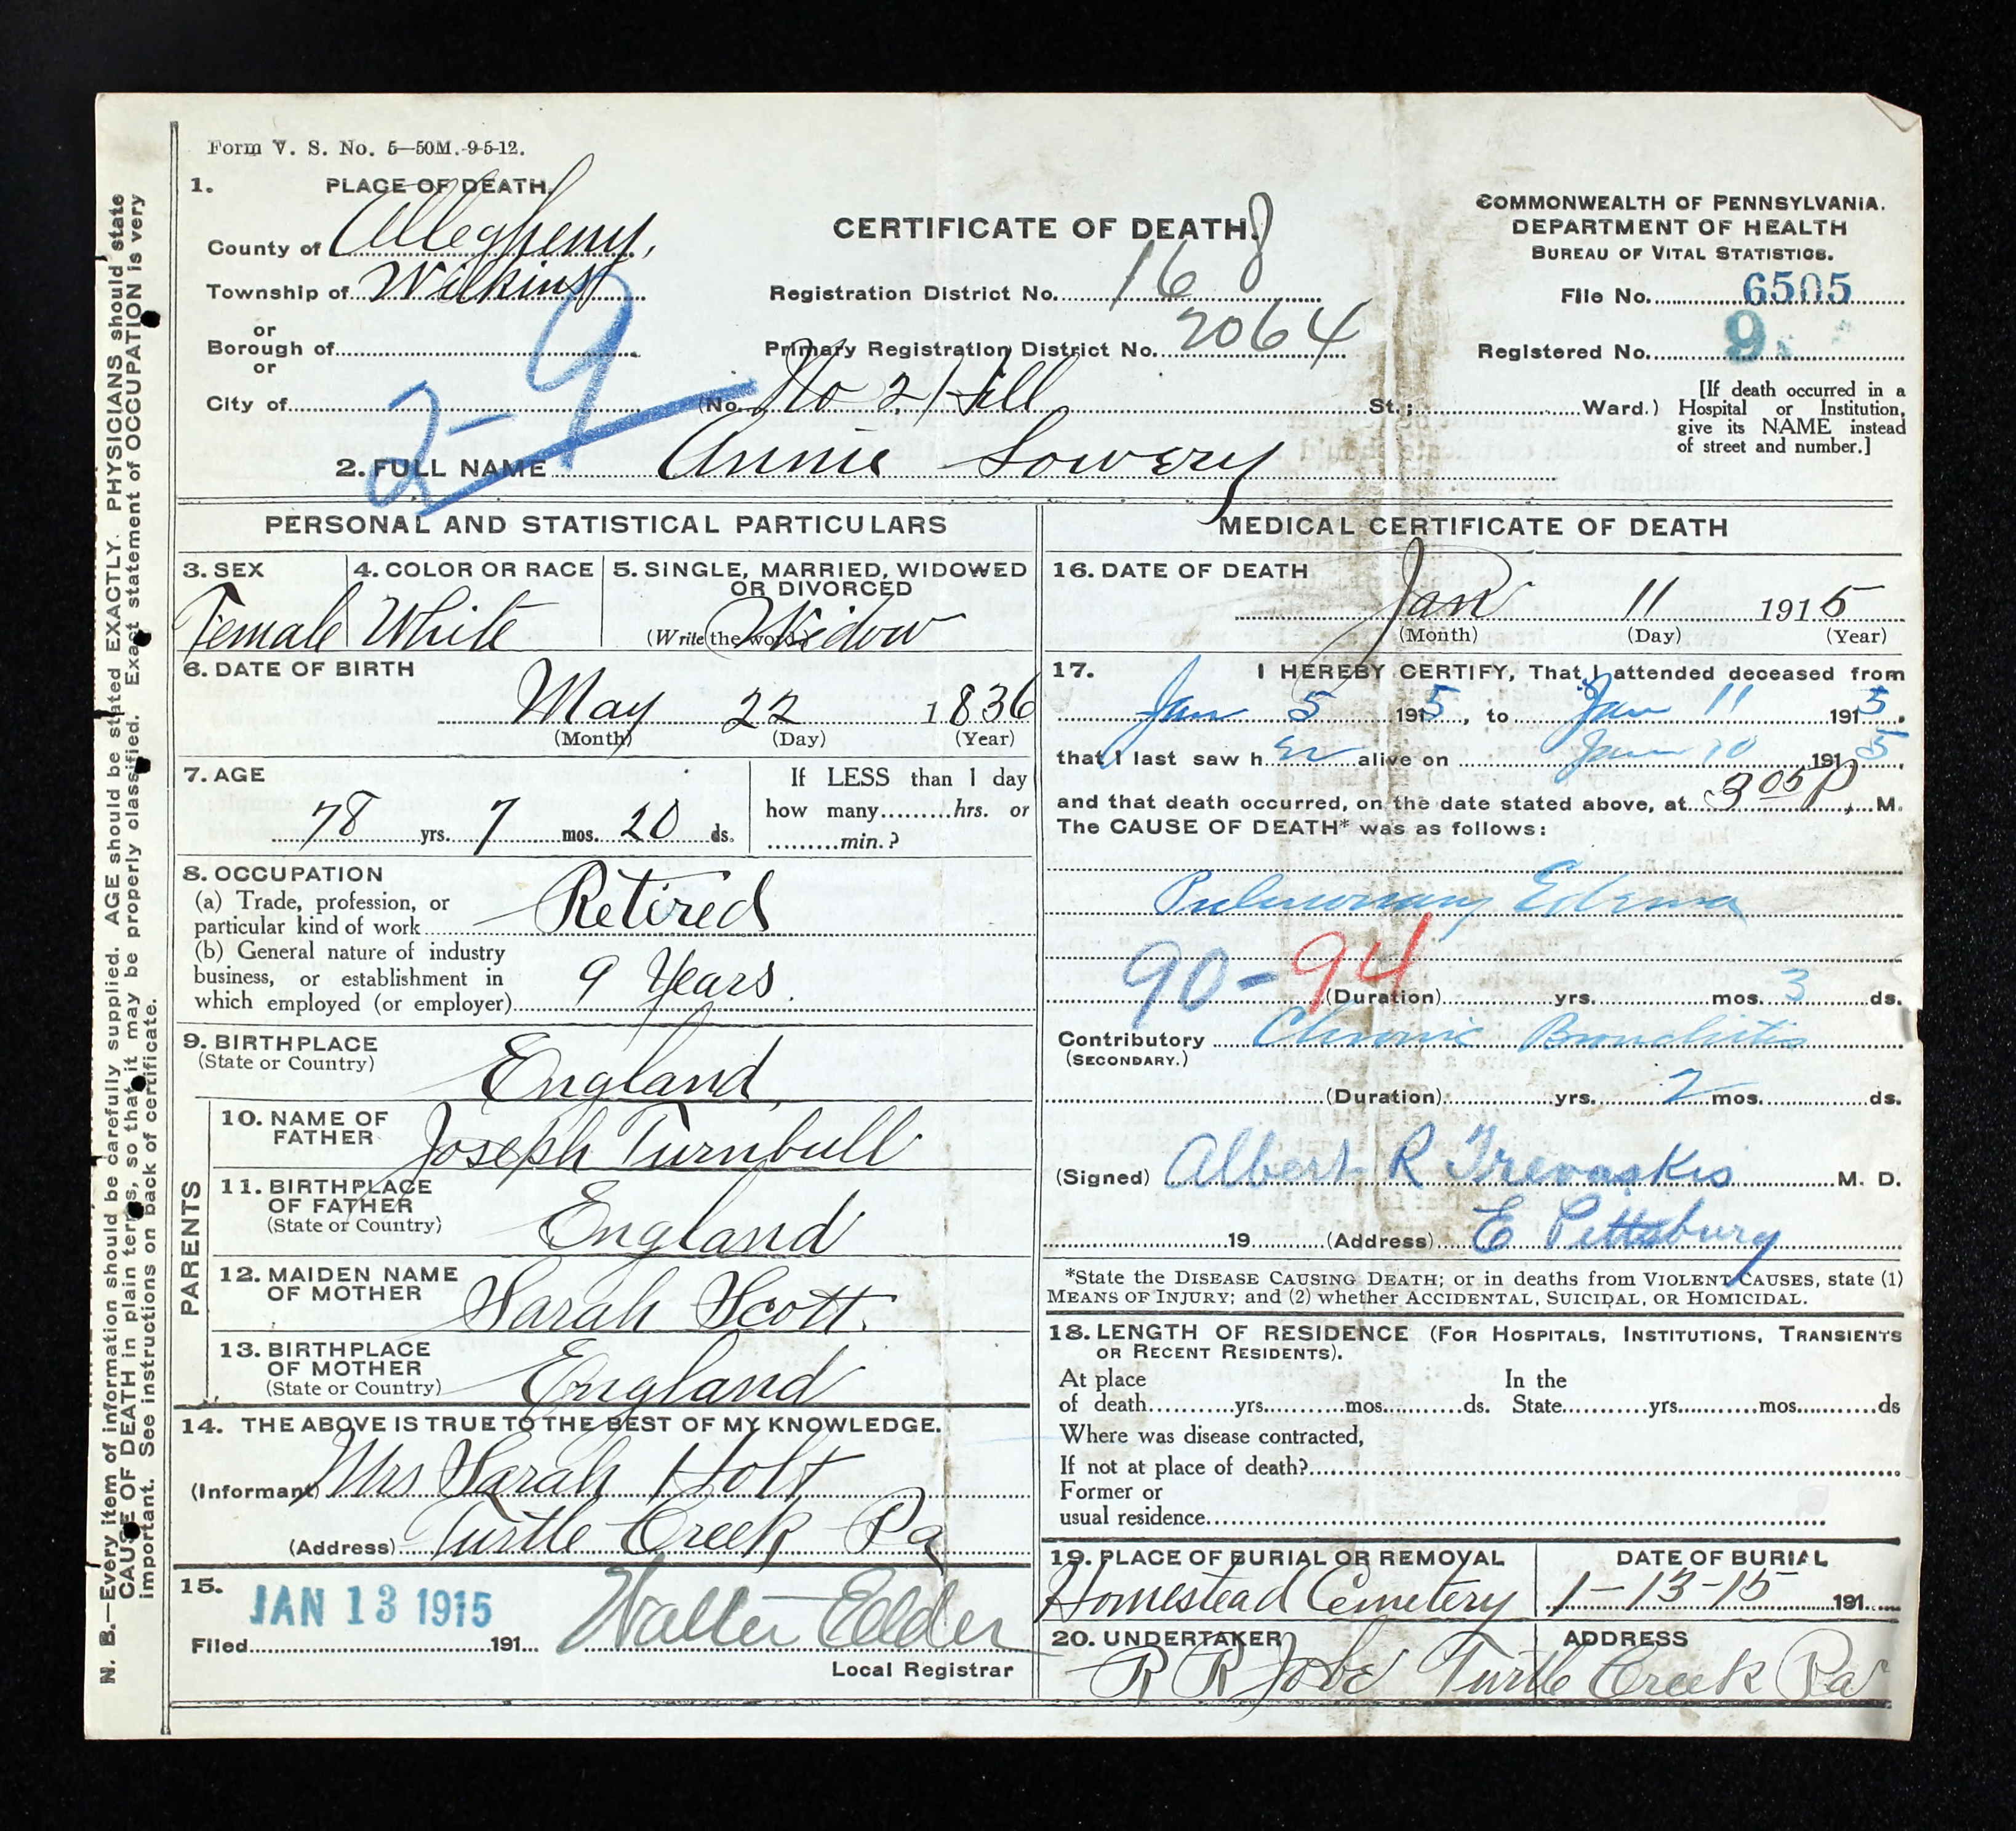 Form V. S. No. 5—50M.-9-5-12.
1. PLACE OF DEATH.
County of Allegheny,
Township of Wilkins
or
Borough of
or
City of
2-9
CERTIFICATE OF DEATH.
Registration District No. 168
Primary Registration District No. 2064
(No. No 2 Hill St.; Ward.)
COMMONWEALTH OF PENNSYLVANIA.
DEPARTMENT OF HEALTH
BUREAU OF VITAL STATISTICS.
File No. 6505
Registered No. 9
[If death occurred in a
Hospital or Institution,
give its NAME instead
of street and number.]
2. FULL NAME Annie Lowery
PERSONAL AND STATISTICAL PARTICULARS
3. SEX
Female
4. COLOR OR RACE
White
5. SINGLE, MARRIED, WIDOWED
OR DIVORCED
(Write the word.) Widow
6. DATE OF BIRTH
May 22 1836
(Month) (Day) (Year)
7. AGE
78 yrs. 7 mos. 20 ds.
If LESS than 1 day
how many hrs. or
min.?
8. OCCUPATION
(a) Trade, profession, or
particular kind of work Retired
(b) General nature of industry
business, or establishment in
which employed (or employer) 9 Years.
9. BIRTHPLACE
(State or Country)
England,
PARENTS
10. NAME OF
FATHER
Joseph Turnbull
11. BIRTHPLACE
OF FATHER
(State or Country)
England
12. MAIDEN NAME
OF MOTHER
Sarah Scott.
13. BIRTHPLACE
OF MOTHER
(State or Country)
England
14. THE ABOVE IS TRUE TO THE BEST OF MY KNOWLEDGE.
(Informant) Mrs Sarah Holt
(Address) Turtle Creek Pa
15.
JAN 13 1915
Filed 191
Walter Elder
Local Registrar
MEDICAL CERTIFICATE OF DEATH
16. DATE OF DEATH
Jan 11 1915
(Month) (Day) (Year)
17. I HEREBY CERTIFY, That I attended deceased from
Jan 5 1915, to Jan 11 1915.
that I last saw her alive on Jan 10 1915,
and that death occurred, on the date stated above, at 305 P, M.
The CAUSE OF DEATH* was as follows:
Pulmonary Edema
90-94
(Duration) yrs. mos. 3 ds.
Contributory Chronic Bronchitis
(SECONDARY.)
(Duration) yrs. 2 mos. ds.
(Signed) Albert R Trevaskis M. D.
19 (Address) E Pittsburg
*State the DISEASE CAUSING DEATH; or in deaths from VIOLENT CAUSES, state (1)
MEANS OF INJURY; and (2) whether ACCIDENTAL, SUICIDAL, OR HOMICIDAL.
18. LENGTH OF RESIDENCE (FOR HOSPITALS, INSTITUTIONS, TRANSIENTS
OR RECENT RESIDENTS).
At place In the
of death yrs. mos. ds. State yrs. mos. ds
Where was disease contracted,
If not at place of death?
Former or
usual residence
19. PLACE OF BURIAL OR REMOVAL
Homestead Cemetery
DATE OF BURIAL
1-13-15 191
20. UNDERTAKER
R R Jobe
ADDRESS
Turtle Creek Pa
N. B.—Every item of information should be carefully supplied. AGE should be stated EXACTLY. PHYSICIANS should state
CAUSE OF DEATH in plain terms, so that it may be properly classified. Exact statement of OCCUPATION is very
important. See instructions on back of certificate.